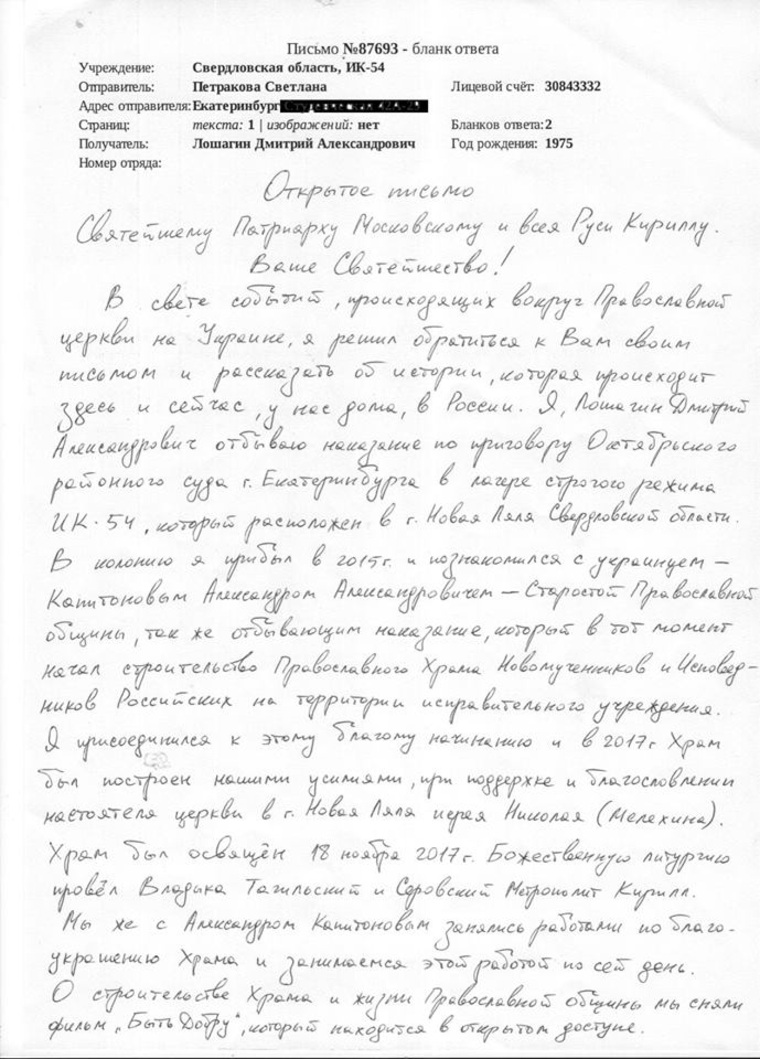 Письмо №87693 - бланк ответа
Учреждение: Свердловская область, ИК-54
Отправитель: Петракова Светлана Лицевой счёт: 30843332
Адрес отправителя: Екатеринбург
Страниц: текста: 1 | изображений: нет Бланков ответа: 2
Получатель: Лошагин Дмитрий Александрович Год рождения: 1975
Номер отряда:
Открытое письмо
Святейшему Патриарху Московскому и всея Руси Кириллу.
Ваше Святейшество!
В свете событий, происходящих вокруг Православной
церкви на Украине, я решил обратиться к Вам своим
письмом и рассказать об истории, которая происходит
здесь и сейчас, у нас дома, в России. Я, Лошагин Дмитрий
Александрович отбываю наказание по приговору Октябрьского
районного суда г. Екатеринбурга в лагере строгого режима
ИК-54, который расположен в г. Новая Ляля Свердловской области.
В колонию я прибыл в 2015г. и познакомился с украинцем –
Капитоновым Александром Александровичем – Старостой Православной
общины, так же отбывающим наказание, который в тот момент
начал строительство Православного Храма Новомученников и Исповед-
ников Российских на территории исправительного учреждения.
Я присоединился к этому благому начинанию и в 2017г Храм
был построен нашими усилиями, при поддержке и благословлении
настоятеля церкви в г. Новая Ляля иерея Николая (Мелехина).
Храм был освящён 18 ноября 2017г. Божественную литургию
провёл Владыка Тагильский и Серовский Митрополит Кирилл.
Мы же с Александром Капитоновым занялись работами по благо-
украшению Храма и занимаемся этой работой по сей день.
О строительстве Храма и жизни Православной общины мы сняли
фильм „Быть Добру", который находится в открытом доступе.